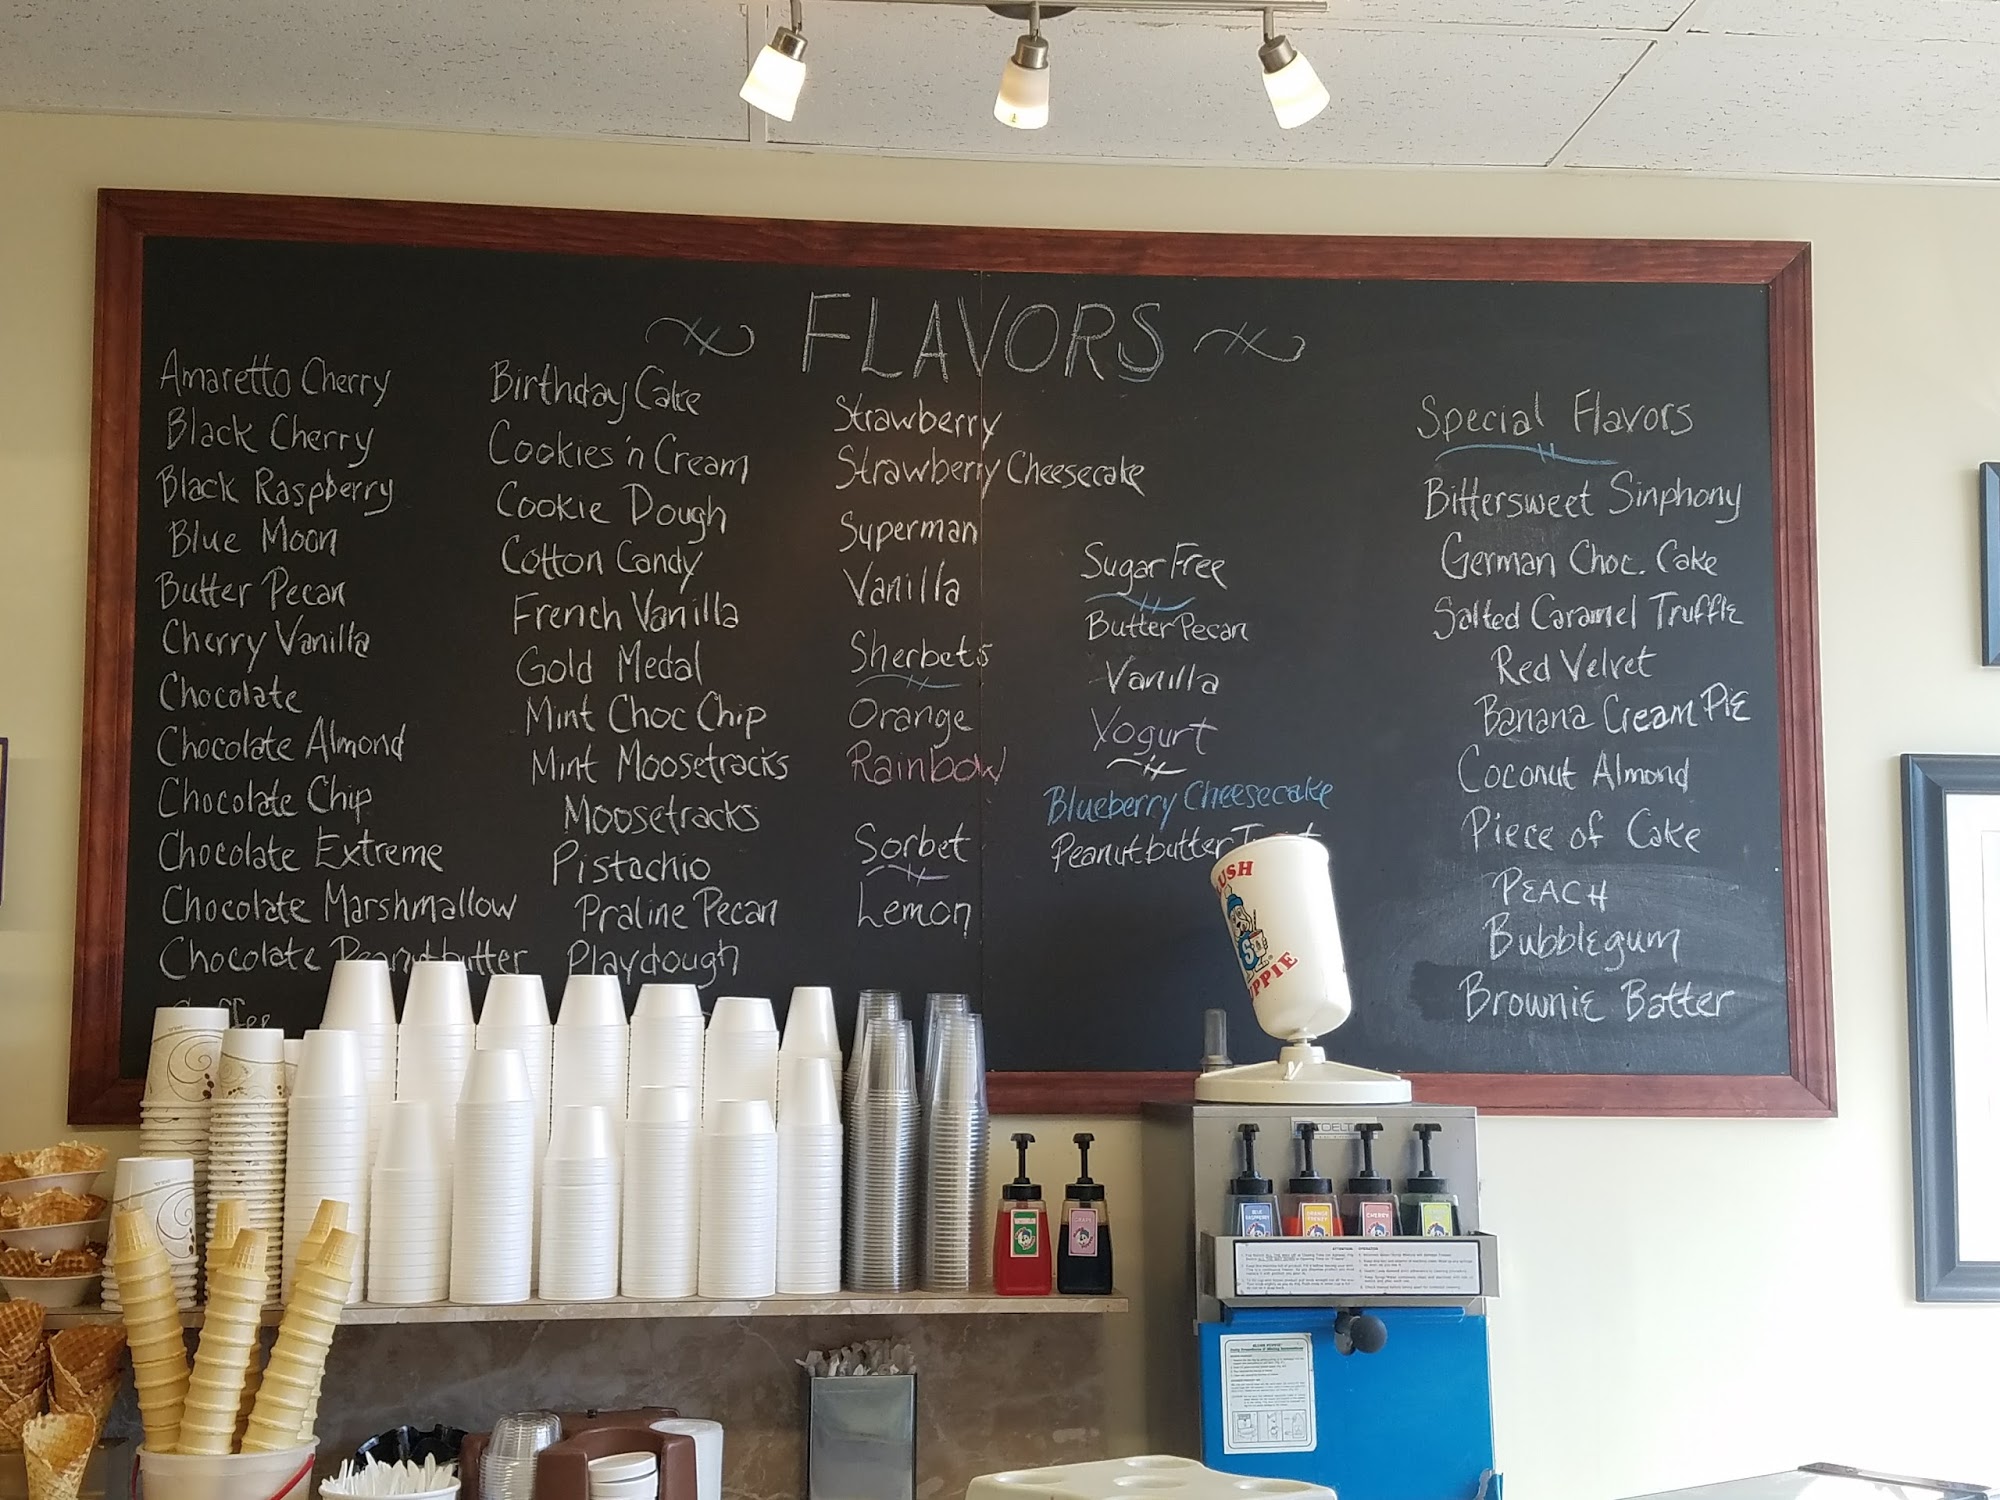 FLAVORS
Amaretto Cherry
Black Cherry
Black Raspberry
Blue Moon
Butter Pecan
Cherry Vanilla
Chocolate
Chocolate Almond
Chocolate Chip
Chocolate Extreme
Chocolate Marshmallow
Chocolate Peanutbutter
Birthday Cake
Cookies 'n Cream
Cookie Dough
Cotton Candy
French Vanilla
Gold Medal
Mint Choc Chip
Mint Moosetracks
Moosetracks
Pistachio
Praline Pecan
Playdough
Strawberry
Strawberry Cheesecake
Superman
Vanilla
Sherbets
Orange
Rainbow
Sorbet
Lemon
Sugar Free
Butter Pecan
Vanilla
Yogurt
Blueberry Cheesecake
Peanutbutter
Special Flavors
Bittersweet Sinphony
German Choc. Cake
Salted Caramel Truffle
Red Velvet
Banana Cream PiE
Coconut Almond
Piece of Cake
PEACH
Bubblegum
Brownie Batter
USH
UPPIE
BLUE RASPBERRY
CHERRY